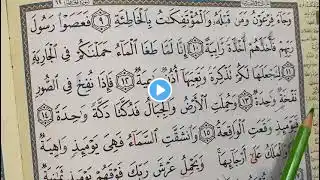 وَجَآءَ فِرْعَوْنُ وَمَن قَبْلَهُۥ وَٱلْمُؤْتَفِكَٰتُ بِٱلْخَاطِئَةِ ٩ فَعَصَوْا۟ رَسُولَ
رَبِّهِمْ فَأَخَذَهُمْ أَخْذَةً رَّابِيَةً ١٠ إِنَّا لَمَّا طَغَا ٱلْمَآءُ حَمَلْنَٰكُمْ فِى ٱلْجَارِيَةِ
١١ لِنَجْعَلَهَا لَكُمْ تَذْكِرَةً وَتَعِيَهَآ أُذُنٌ ١٢ فَإِذَا نُفِخَ فِى ٱلصُّورِ
نَفْخَةٌ وَٰحِدَةٌ ١٣ وَحُمِلَتِ ٱلْأَرْضُ وَٱلْجِبَالُ فَدُكَّتَا دَكَّةً وَٰحِدَةً ١٤
فَيَوْمَئِذٍ وَقَعَتِ ٱلْوَاقِعَةُ ١٥ وَٱنشَقَّتِ ٱلسَّمَآءُ فَهِىَ يَوْمَئِذٍ وَاهِيَةٌ
وَٱلْمَلَكُ عَلَىٰٓ أَرْجَآئِهَا وَيَحْمِلُ عَرْشَ رَبِّكَ فَوْقَهُمْ يَوْمَئِذٍ ثَمَٰنِيَةٌ